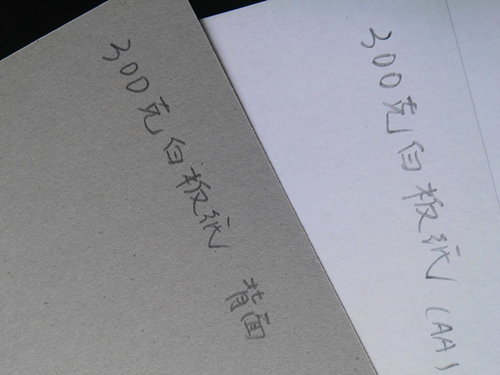 300克白板纸 背面
300克白板纸(AA)